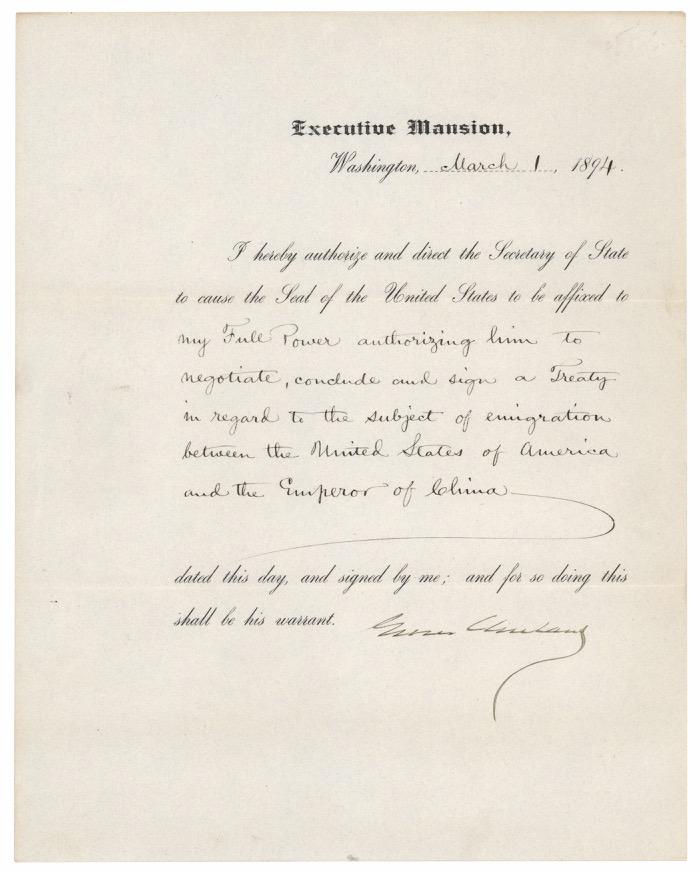 Executive Mansion,
Washington, March 1, 1894.
I hereby authorize and direct the Secretary of State
to cause the Seal of the United States to be affixed to
my Full Power authorizing him to
negotiate, conclude and sign a Treaty
in regard to the subject of emigration
between the United States of America
and the Emperor of China
dated this day, and signed by me; and for so doing this
shall be his warrant.
Grover Cleveland